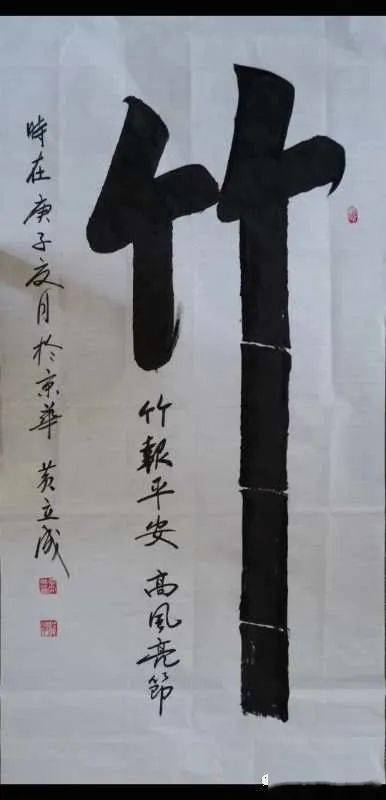 竹
竹報平安 高風亮節
時在庚子夏月於京華 黃立成